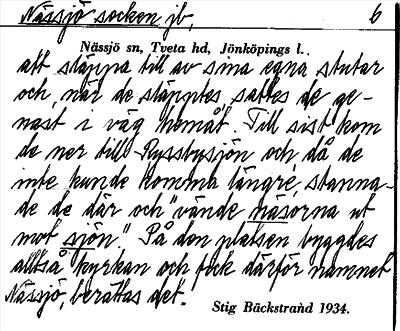 Nässjö socken jb, 6
Nässjö sn, Tveta hd, Jönköpings l.
att släppa till av sina egna stutar
och, när de släpptes, sattes de ge-
nast i väg hemåt. Till sist kom
de ner till Ryssbysjön och då de
inte kunde komma längre, stanna-
de de där och "vände näsorna ut
mot sjön". På den platsen byggdes
alltså kyrkan och fick därför namnet
Nässjö, berättas det.
Stig Bäckstrand 1934.